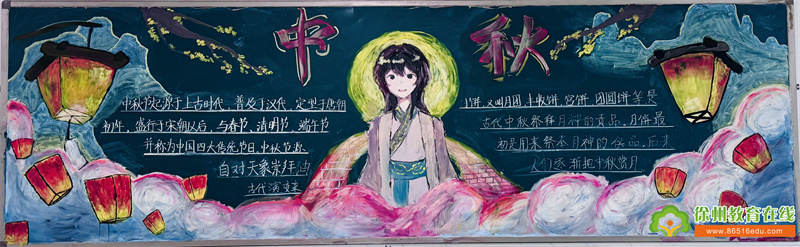 中秋
中秋节起源于上古时代，普及于汉代，定型于唐朝
初年，盛行于宋朝以后，与春节、清明节、端午节
并称为中国四大传统节日。中秋节
自对天象崇拜
古代
月饼，又叫月团、丰收饼、宫饼、团圆饼等是
古代中秋祭拜月神的贡品，月饼最
初是用来祭奉月神的供品，后来
人们逐渐把中秋赏月
徐州教育在线
www.86516edu.com